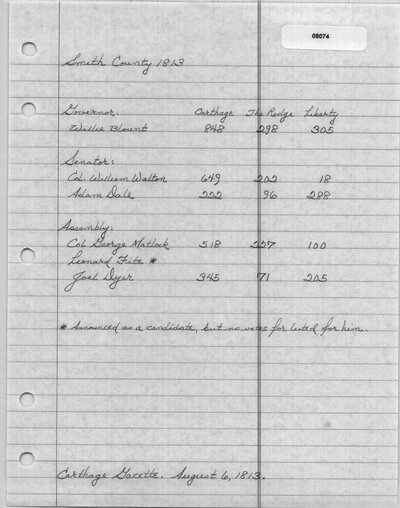 08074
Smith County 1813
Governor: Carthage The Ridge Liberty
Willie Blount 848 298 305
Senator:
Col. William Walton 649 202 18
Adam Dale 222 96 288
Assembly:
Col George Matlock 518 227 100
Leonard Fite *
Joel Dyer 345 71 205
* Announced as a candidate, but no votes for listed for him.
Carthage Gazette. August 6, 1813.